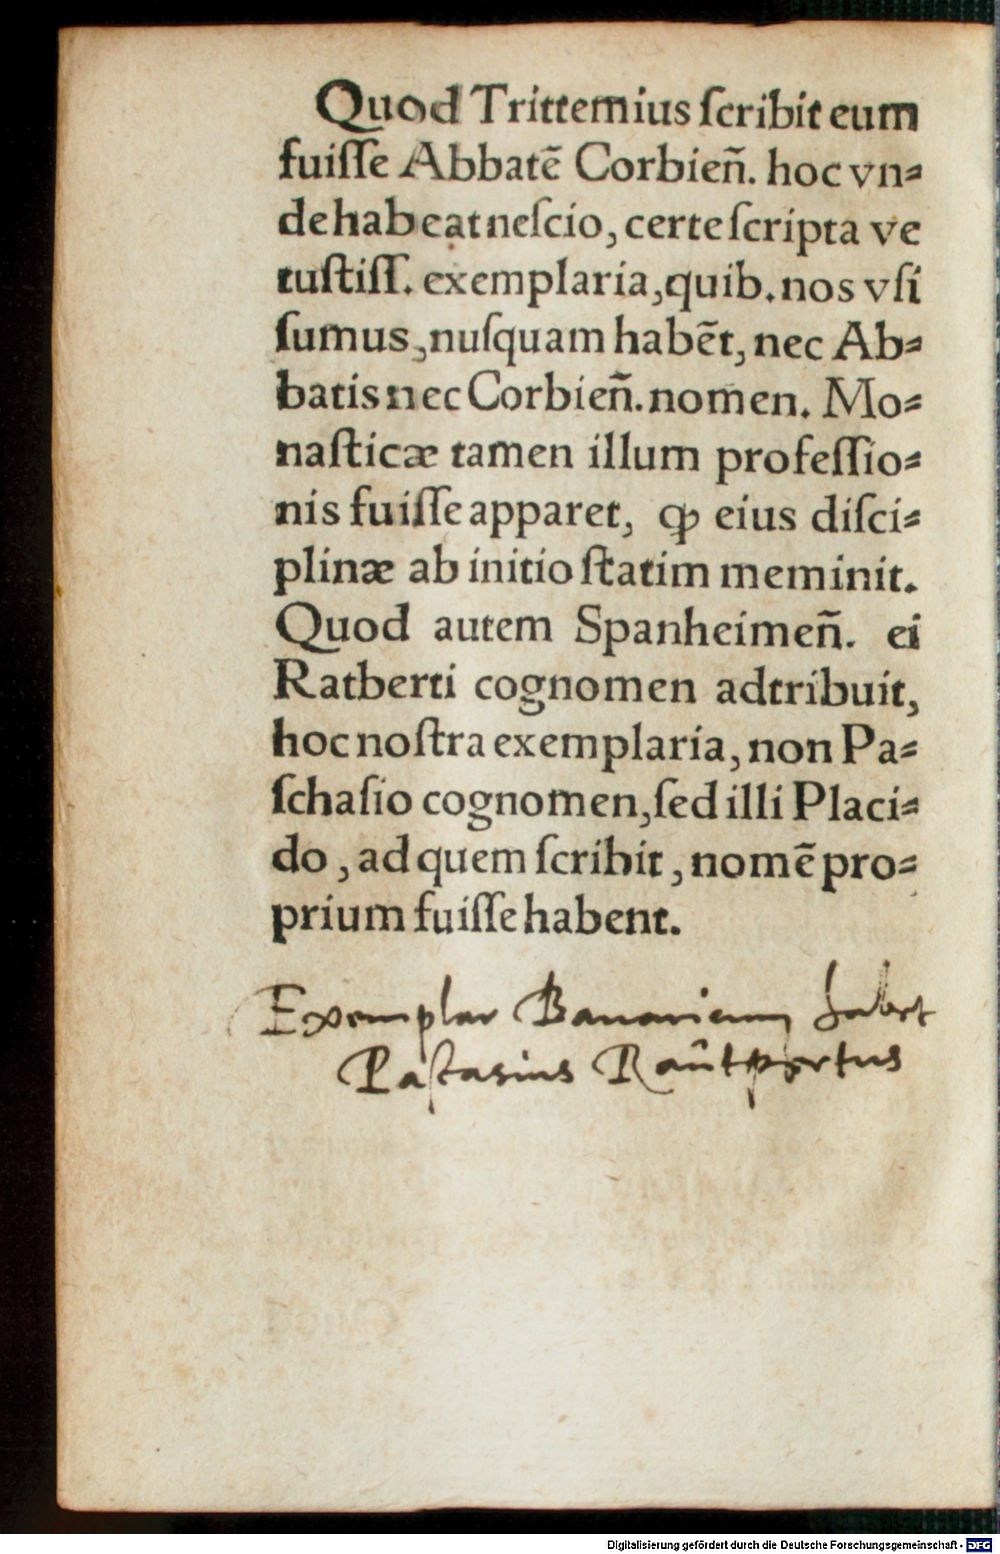 Quod Trittemius ſcribit eum
fuiſſe Abbatē Corbieñ. hoc vn⸗
de habeat neſcio, certe ſcripta ve
tuſtiſſ. exemplaria, quib. nos vſi
ſumus, nuſquam habēt, nec Ab⸗
batis nec Corbieñ. nomen. Mo⸗
naſticæ tamen illum profeſſio⸗
nis fuiſſe apparet, ꝙ eius diſci⸗
plinæ ab initio ſtatim meminit.
Quod autem Spanheimeñ. ei
Ratberti cognomen adtribuit,
hoc noſtra exemplaria, non Pa⸗
ſchaſio cognomen, ſed illi Placi⸗
do, ad quem ſcribit, nomē pro⸗
prium fuiſſe habent.
Exemplar Bauaricum habet
Paſtasius
Digitalisierung gefördert durch die Deutsche Forschungsgemeinschaft - DFG